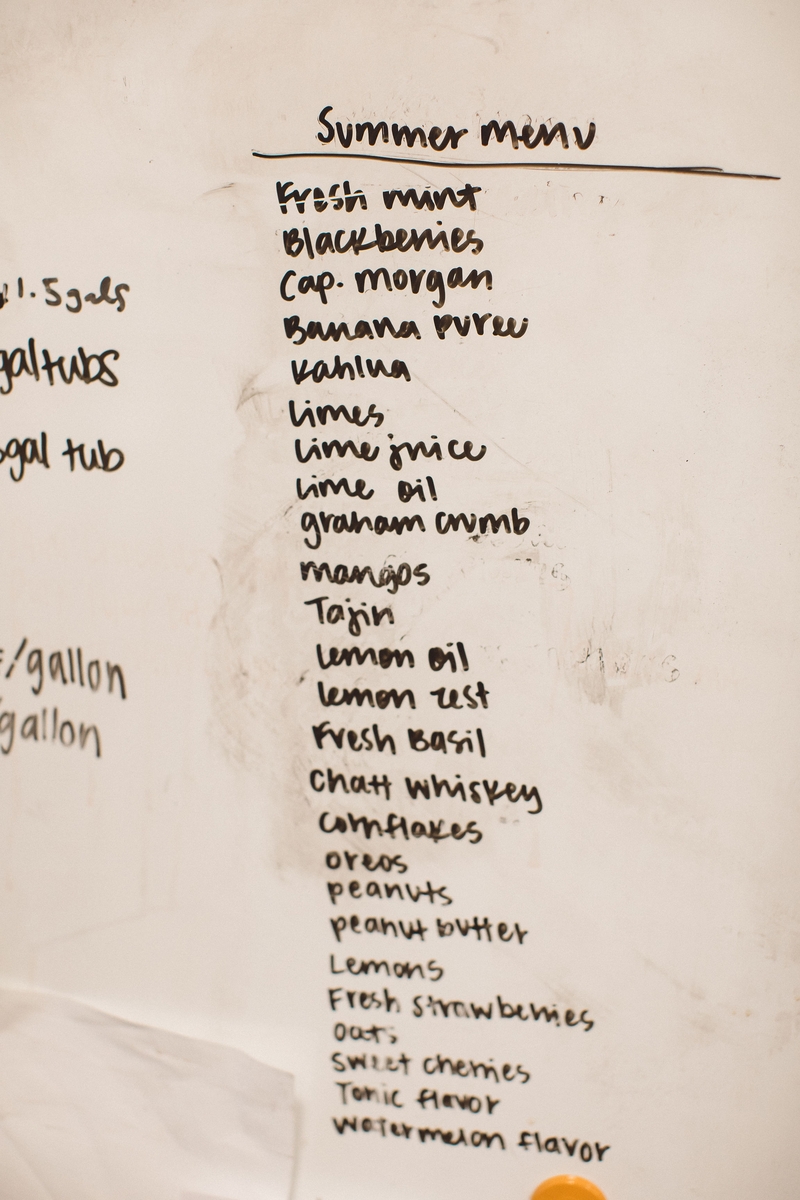 Summer menu
Fresh mint
Blackberries
Cap. morgan
Banana puree
Kahlua
limes
lime juice
lime oil
graham crumb
mangos
Tajin
lemon oil
lemon zest
Fresh Basil
Chatt whiskey
cornflakes
oreos
peanuts
peanut butter
Lemons
Fresh strawberries
oats
sweet cherries
Tonic flavor
watermelon flavor
1.5gals
gal tubs
gal tub
/gallon
gallon